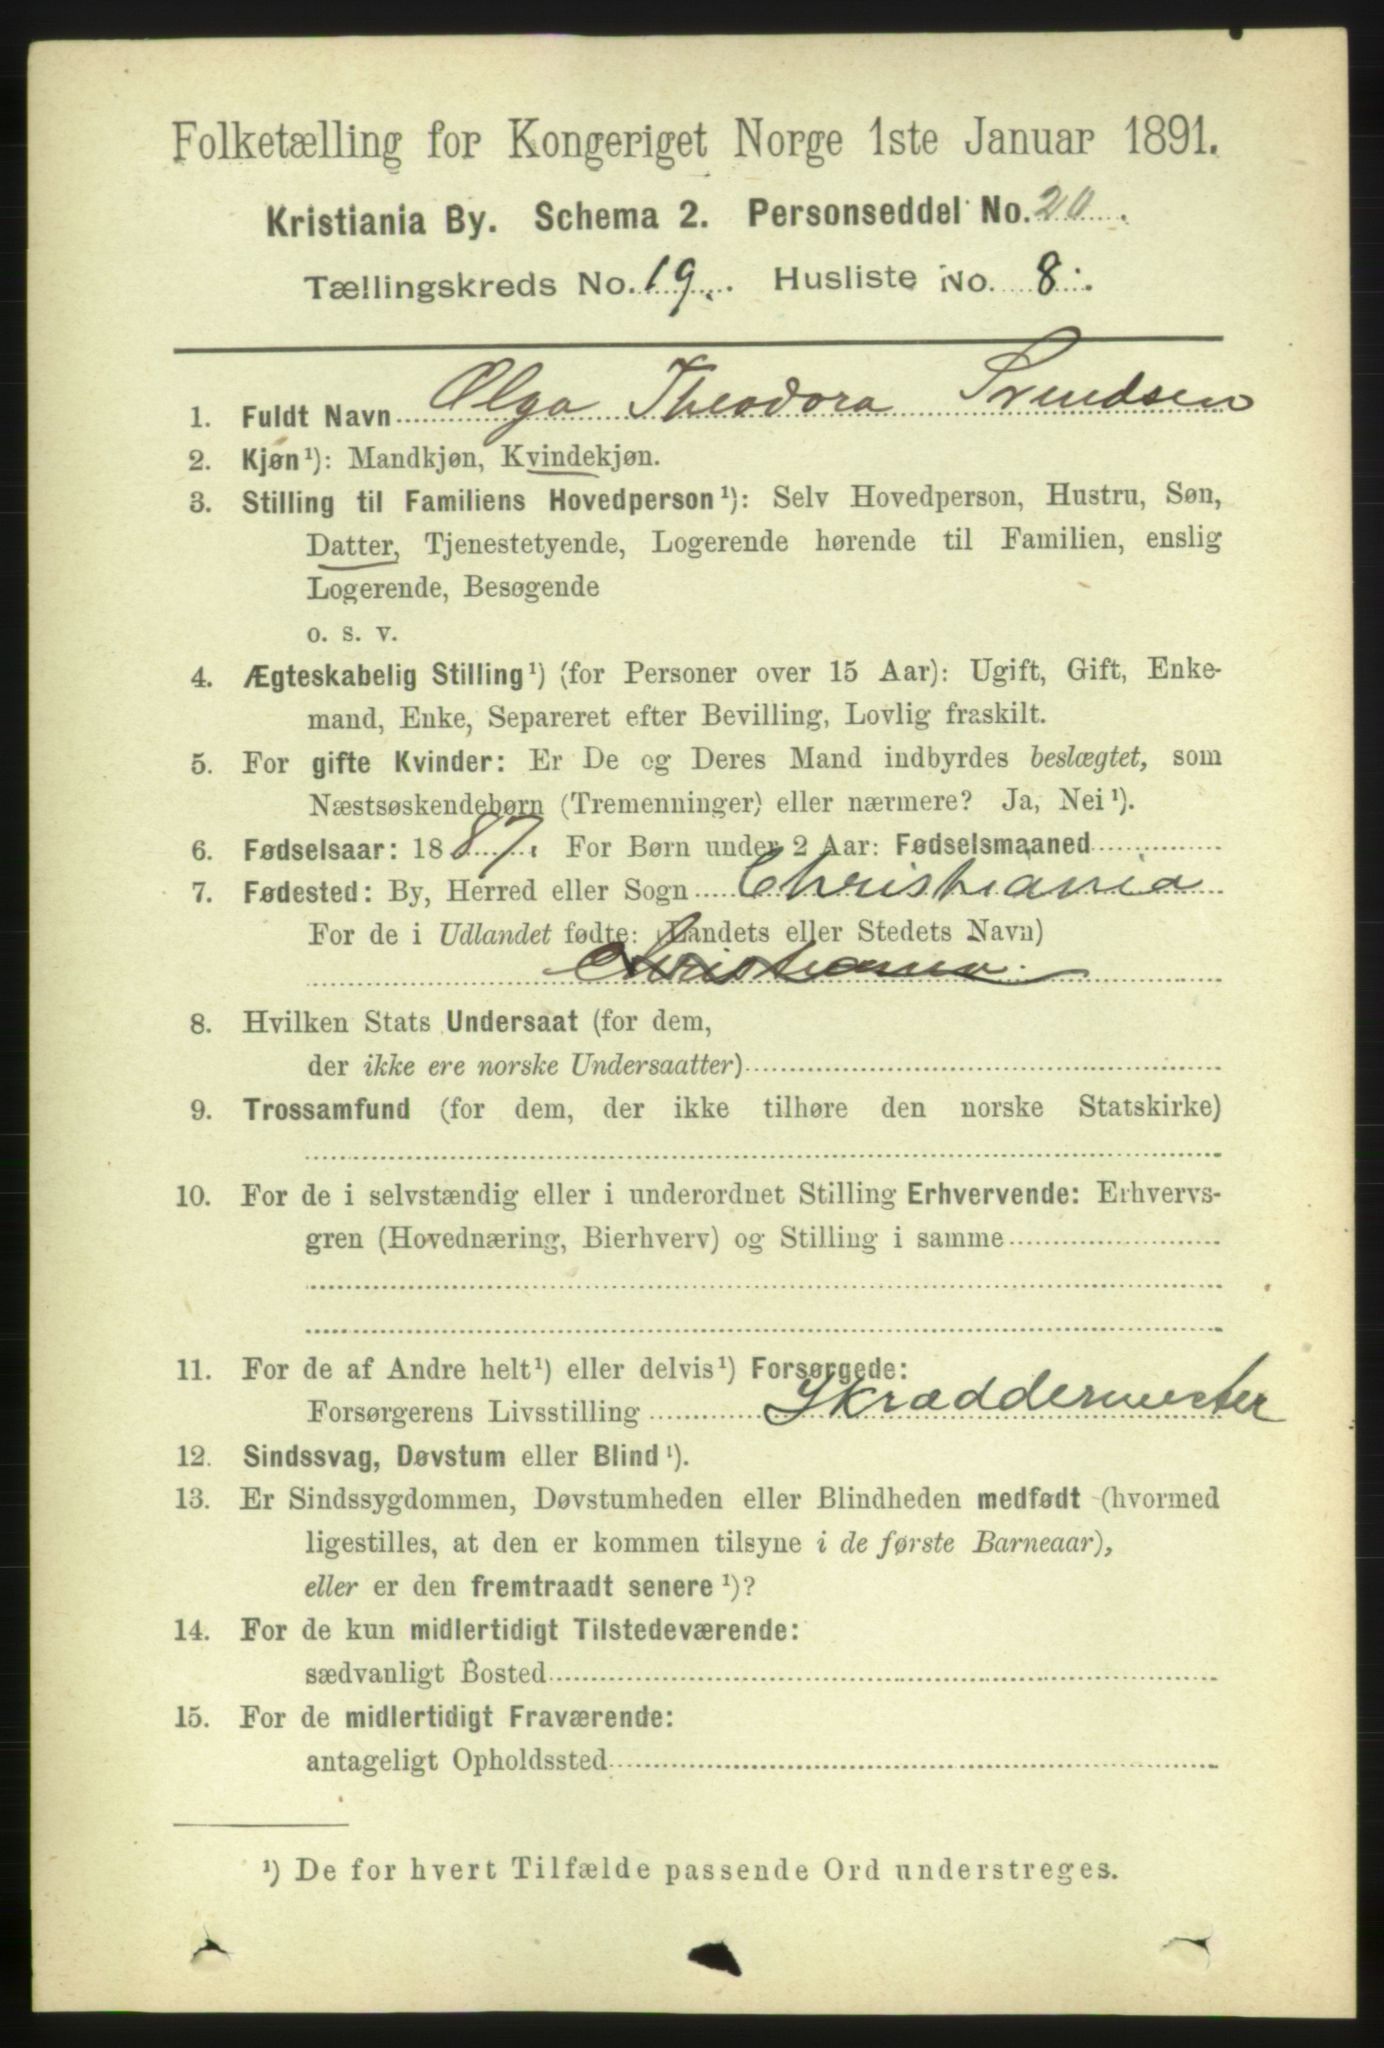 Folketælling for Kongeriget Norge 1ste Januar 1891.
Kristiania By. Schema 2. Personseddel No. 20.
Tællingskreds No. 19. Husliste No. 8.
1. Fuldt Navn Olga Theodora Svendsen
2. Kjøn¹): Mandkjøn, Kvindekjøn.
3. Stilling til Familiens Hovedperson¹): Selv Hovedperson, Hustru, Søn,
Datter, Tjenestetyende, Logerende hørende til Familien, enslig
Logerende, Besøgende
o. s. v.
4. Ægteskabelig Stilling¹) (for Personer over 15 Aar): Ugift, Gift, Enke-
mand, Enke, Separeret efter Bevilling, Lovlig fraskilt.
5. For gifte Kvinder: Er De og Deres Mand indbyrdes beslægtet, som
Næstsøskendebørn (Tremenninger) eller nærmere? Ja, Nei¹).
6. Fødselsaar: 1887. For Børn under 2 Aar: Fødselsmaaned
7. Fødested: By, Herred eller Sogn Christiania
For de i Udlandet fødte: Landets eller Stedets Navn)
Christiania
8. Hvilken Stats Undersaat (for dem,
der ikke ere norske Undersaatter)
9. Trossamfund (for dem, der ikke tilhøre den norske Statskirke)
10. For de i selvstændig eller i underordnet Stilling Erhvervende: Erhvervs-
gren (Hovednæring, Bierhverv) og Stilling i samme
11. For de af Andre helt¹) eller delvis¹) Forsørgede:
Forsørgerens Livsstilling Skræddermester
12. Sindssvag, Døvstum eller Blind¹).
13. Er Sindssygdommen, Døvstumheden eller Blindheden medfødt (hvormed
ligestilles, at den er kommen tilsyne i de første Barneaar),
eller er den fremtraadt senere¹)?
14. For de kun midlertidigt Tilstedeværende:
sædvanligt Bosted
15. For de midlertidigt Fraværende:
antageligt Opholdssted
¹) De for hvert Tilfælde passende Ord understreges.